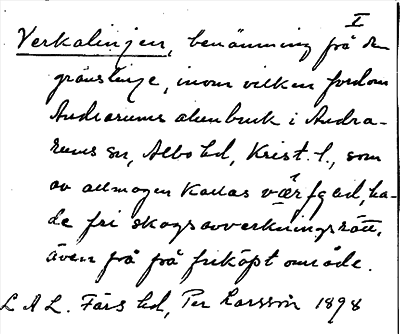 I
Verkalinjen, benämning på den
gränslinje, inom vilken fordom
Andrarums alunbruk i Andra-
rums sn, Albo hd, Krist. l., som
av allmogen kallas
de fri skogsavverkningsrätt,
även på frå friköpt område.
L A L. Färs hd, Per Larsson 1898